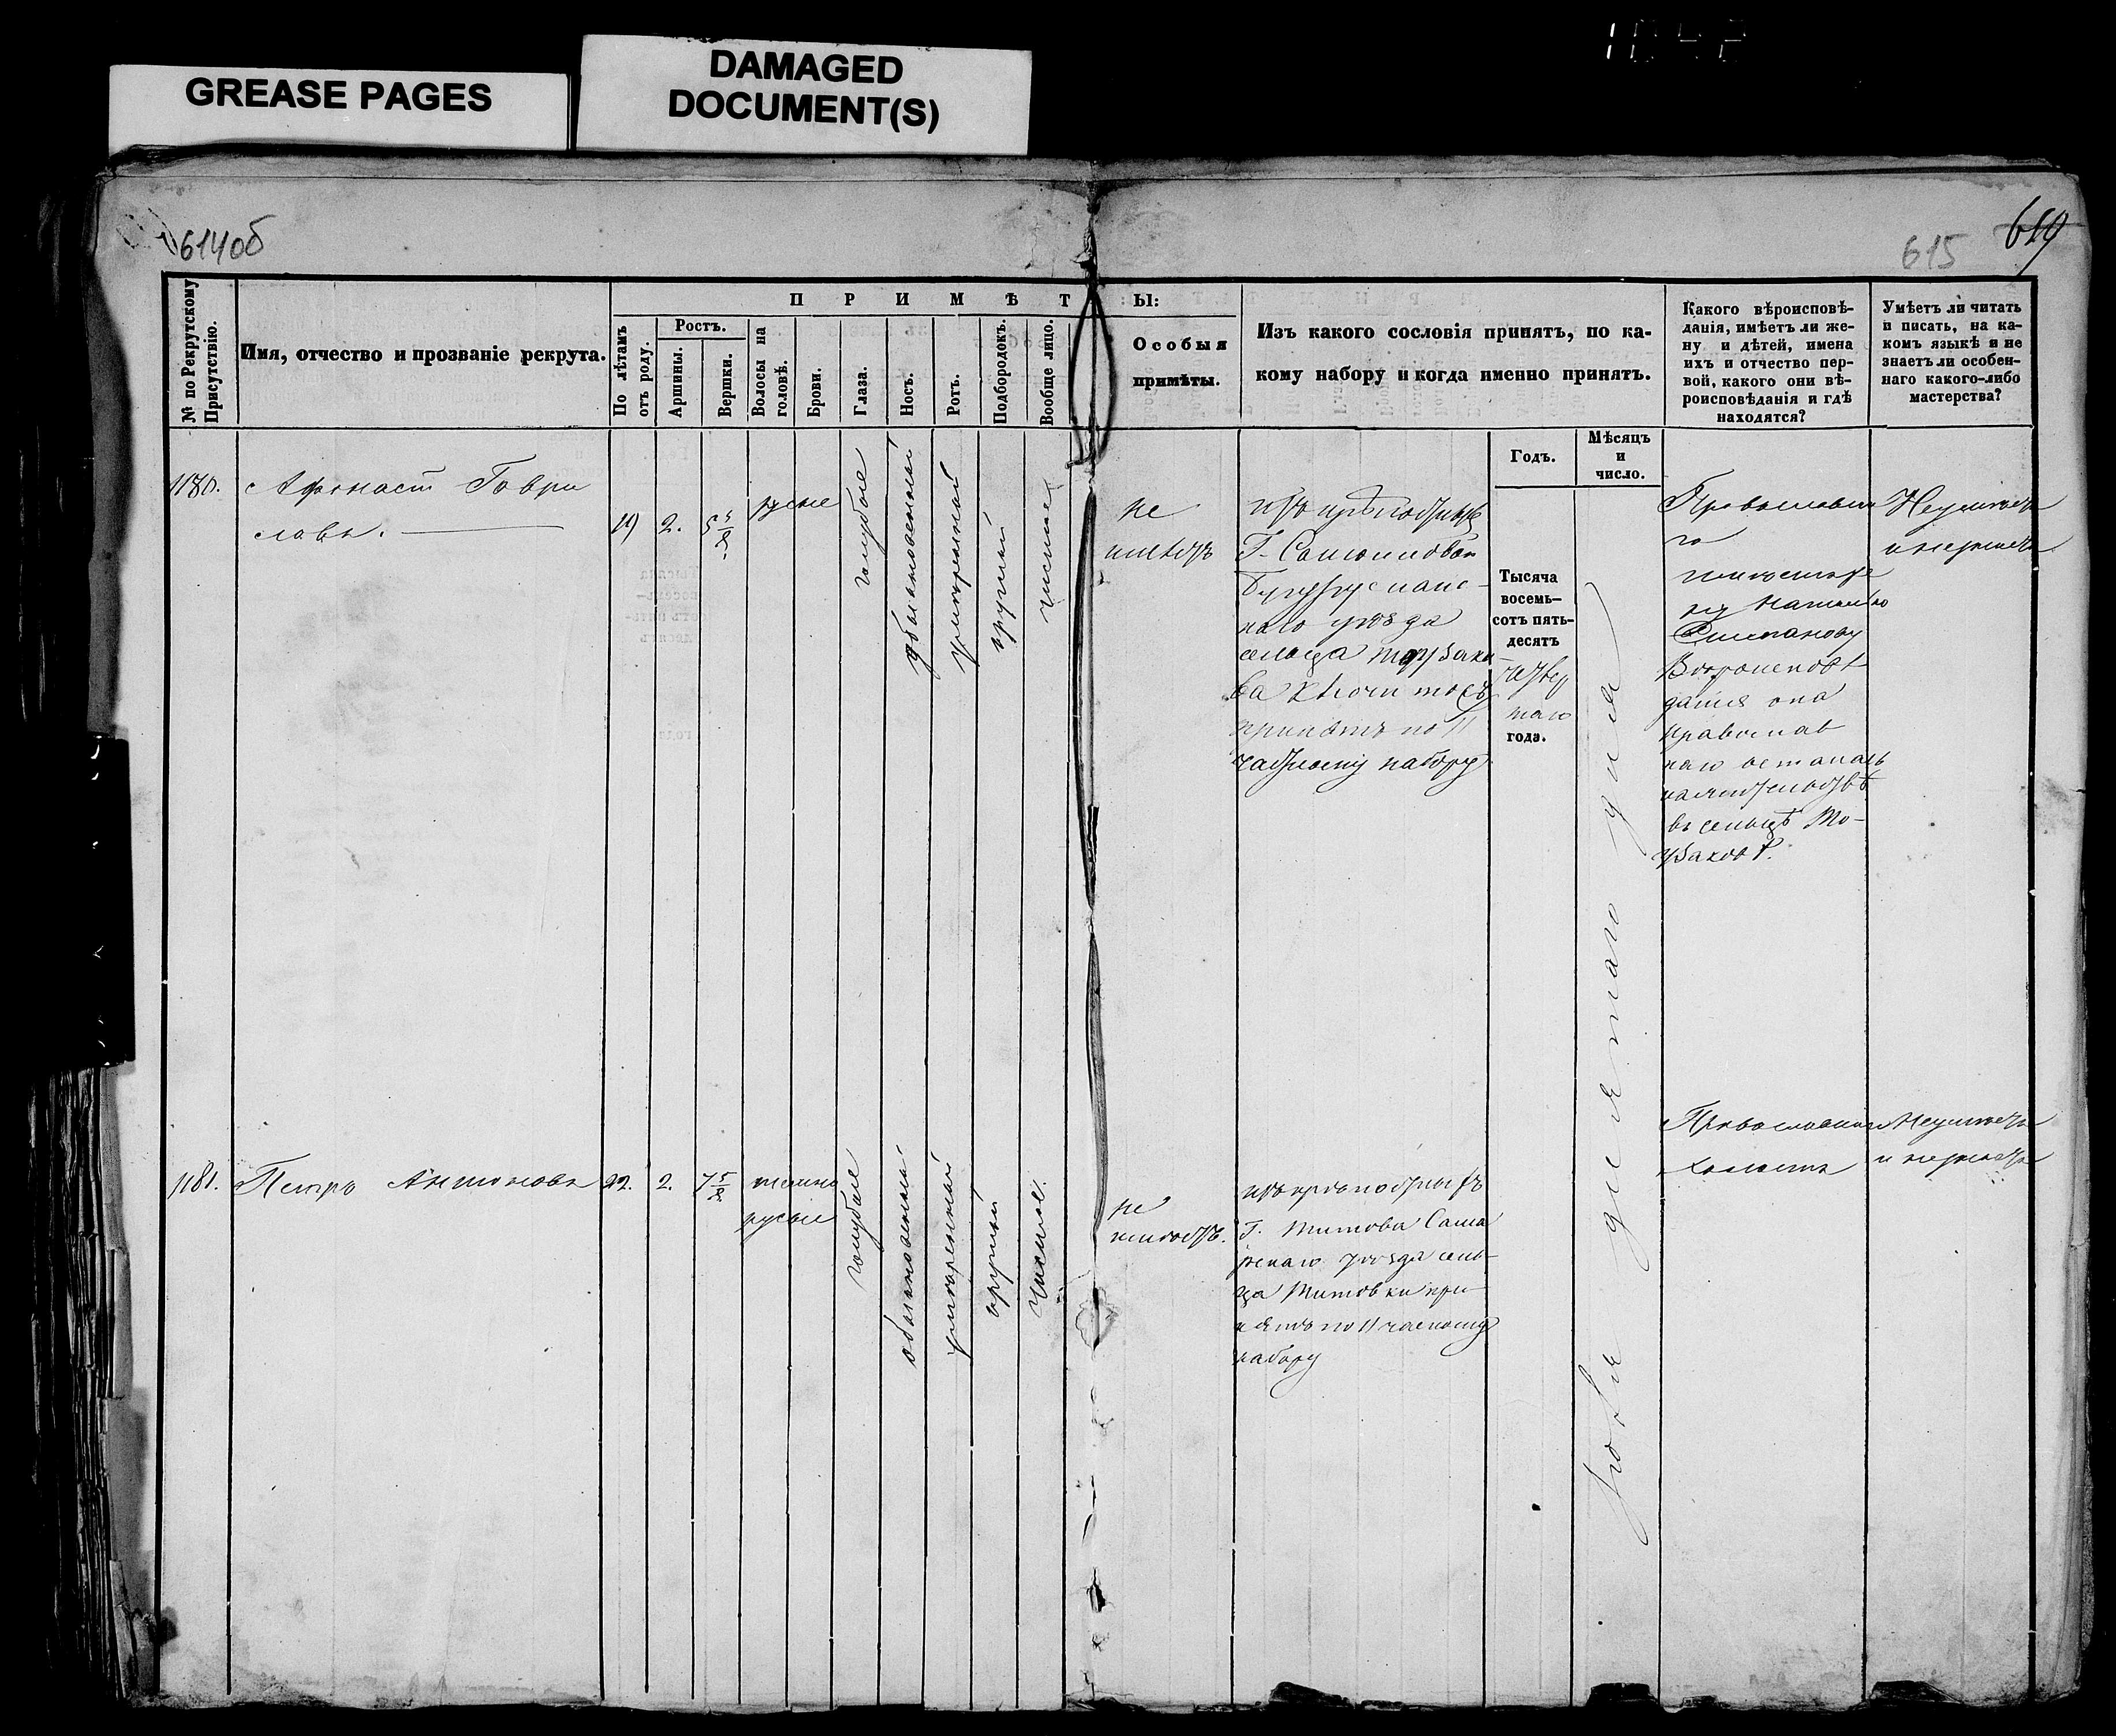 GREASE PAGES
DAMAGED
DOCUMENT(S)
614об
615
619
№ по Рекрутскому
Присутствію.
Имя, отчество и прозваніе рекрута.
ПРИМѢТЫ:
По лѣтамъ
отъ роду.
Ростъ.
Аршины.
Вершки.
Волосы на
головѣ.
Брови.
Глаза.
Носъ.
Ротъ.
Подбородокъ.
Вообще лицо.
Особыя
примѣты.
Изъ какого сословія принятъ, по ка-
кому набору и когда именно принятъ.
Годъ.
Мѣсяцъ
и
число.
Какого вѣроисповѣ-
данія, имѣетъ ли же-
ну и дѣтей, имена
ихъ и отчество пер-
вой, какого они вѣ-
роисповѣданія и гдѣ
находятся?
Умѣетъ ли читать
и писать, на ка-
комъ языкѣ и не
знаетъ ли особен-
наго какого-либо
мастерства?
1180.
Афонасій Гаври
ловъ.
19
2.
5 5/8
русые
голубые
обыкновенный
умѣренный
круглый
чистое
не
имѣетъ
изъ крѣпостныхъ
Г.
Бугурусланс-
каго уѣзда
сельца
принятъ по 11
частному набору
Тысяча
восемь-
сотъ пять-
десятъ
четвер
таго
года.
Православна
го
жену Наталью
Степанову
Вѣроисповѣ
данія она
православ
наго осталась
на жительствѣ
въ сельцѣ
Неумѣетъ
1181.
Петръ Антоновъ
22.
2.
7 5/8
темно
русые
голубые
обыкновенный
умѣренный
круглый
чистое.
не
имѣетъ.
изъ крѣпостныхъ
Г. Титова Сама
рскаго уѣзда сель-
ца Титовки при-
нятъ по 11 частному
набору
дня
Православнаго
холостъ
Неумѣетъ